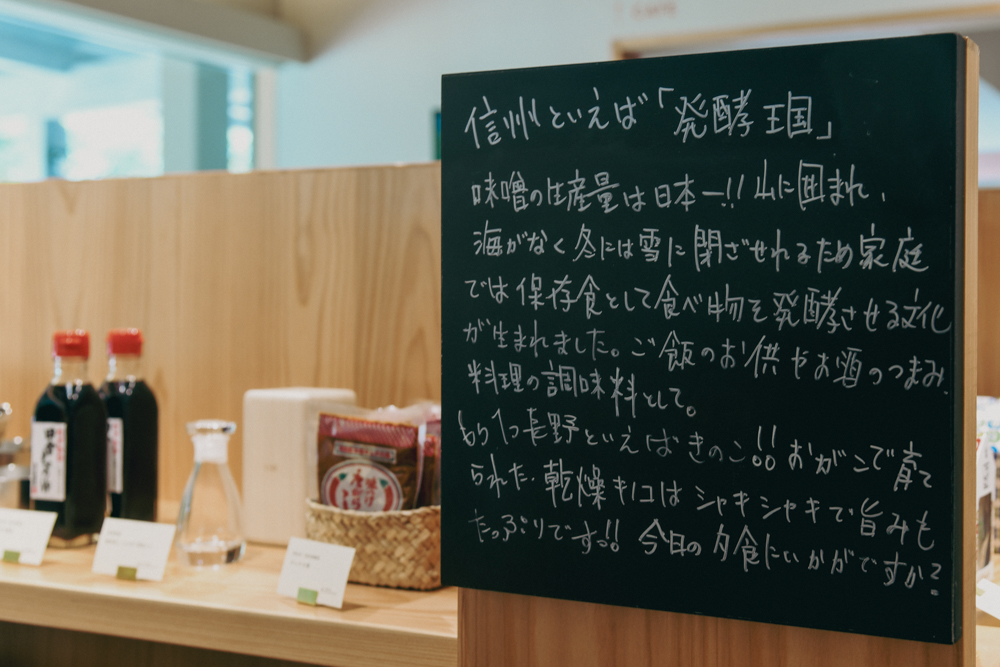 信州といえば「発酵王国」
味噌の生産量は日本一!! 山に囲まれ、
海がなく冬には雪に閉ざせれるため家庭
では保存食として食べ物を発酵させる文化
が生まれました。ご飯のお供やお酒のつまみ、
料理の調味料として。
もう1つ長野といえばきのこ!! おがこで育て
られた、乾燥キノコはシャキシャキで旨みも
たっぷりですっ!! 今日の夕食にいかがですか?